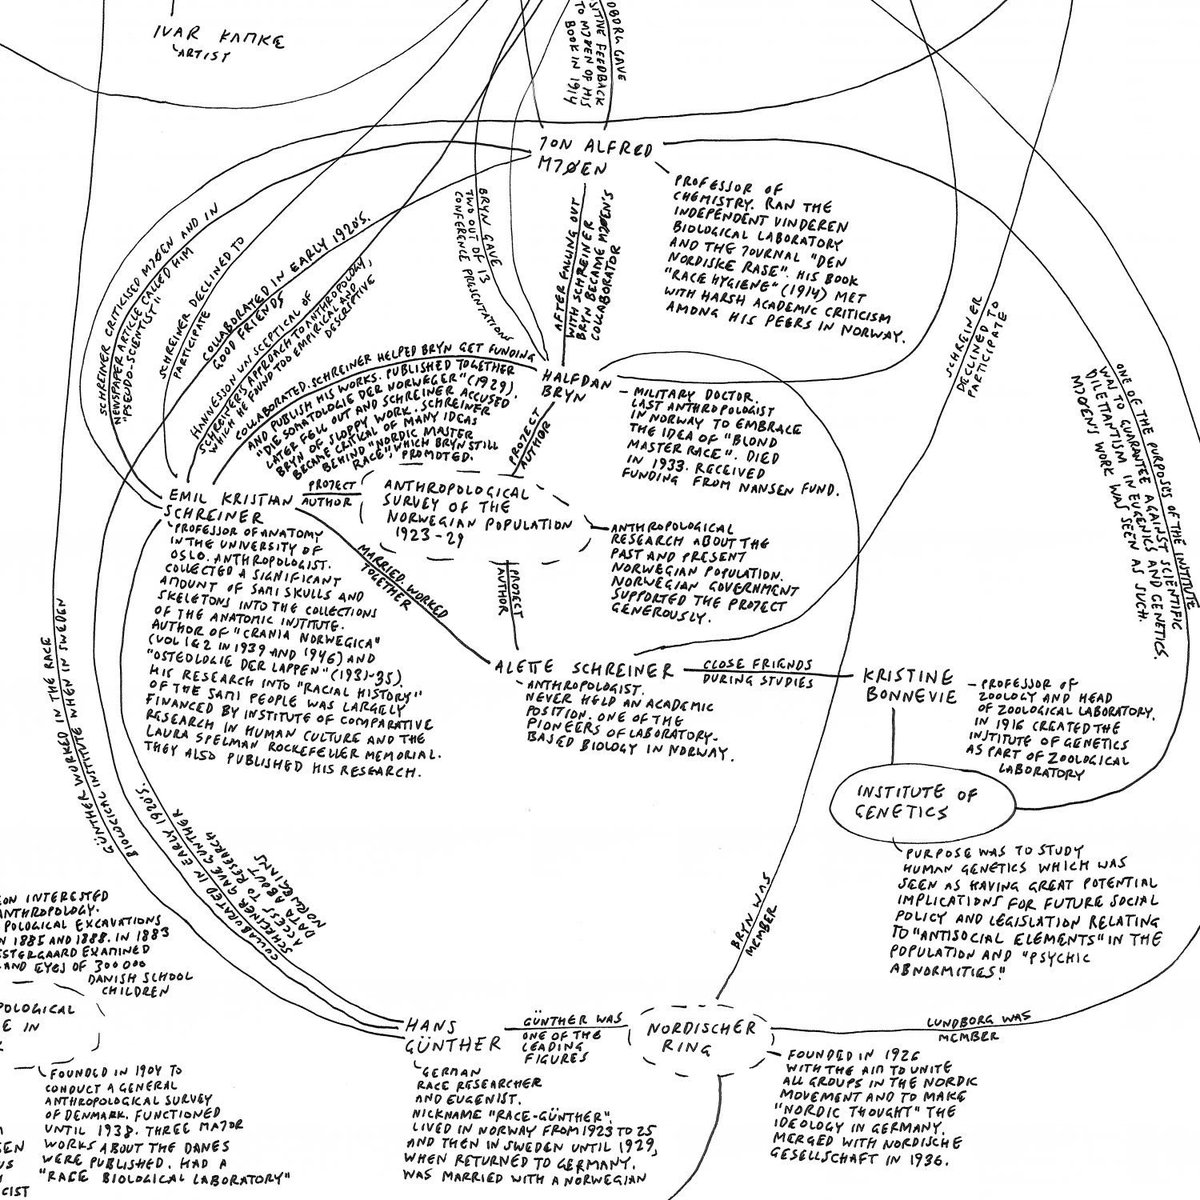 IVAR KAMKE
ARTIST
DBORG GAVE
SITIVE FEEDBACK
TO MJØEN OF HIS
BOOK IN 1914
JON ALFRED
MJØEN
PROFESSOR OF
CHEMISTRY. RAN THE
INDEPENDENT VINDEREN
BIOLOGICAL LABORATORY
AND THE JOURNAL "DEN
NORDISKE RASE". HIS BOOK
"RACE HYGIENE" (1914) MET
WITH HARSH ACADEMIC CRITICISM
AMONG HIS PEERS IN NORWAY.
BRYN GAVE
TWO OUT OF 13
CONFERENCE PRESENTATIONS
AFTER FALLING OUT
WITH SCHREINER
BRYN BECAME MJØEN'S
COLLABORATOR
SCHREINER CRITICISED MJØEN AND IN
NEWSPAPER ARTICLE CALLED HIM
"PSEUDO-SCIENTIST"
SCHREINER DECLINED TO
PARTICIPATE
COLLABORATED IN EARLY 1920'S.
GOOD FRIENDS
HANNESSON WAS SCEPTICAL OF
SCHREINER'S APPROACH TO ANTHROPOLOGY,
WHICH HE FOUND TOO EMPIRICAL AND
DESCRIPTIVE
COLLABORATED. SCHREINER HELPED BRYN GET FUNDING
AND PUBLISH HIS WORKS. PUBLISHED TOGETHER
"DIE SOMATOLOGIE DER NORWEGER" (1929).
LATER FELL OUT AND SCHREINER ACCUSED
BRYN OF SLOPPY WORK. SCHREINER
BECAME CRITICAL OF MANY IDEAS
BEHIND "NORDIC MASTER
RACE" WHICH BRYN STILL
PROMOTED.
HALFDAN
BRYN
MILITARY DOCTOR.
LAST ANTHROPOLOGIST
IN NORWAY TO EMBRACE
THE IDEA OF "BLOND
MASTER RACE". DIED
IN 1933. RECEIVED
FUNDING FROM NANSEN FUND.
SCHREINER
DECLINED TO
PARTICIPATE
ONE OF THE PURPOSES OF THE INSTITUTE
WAS TO GUARANTEE AGAINST SCIENTIFIC
DILETTANTISM IN EUGENICS AND GENETICS.
MJØEN'S WORK WAS SEEN AS SUCH.
PROJECT
AUTHOR
EMIL KRISTIAN
SCHREINER
PROJECT
AUTHOR
ANTHROPOLOGICAL
SURVEY OF THE
NORWEGIAN POPULATION
1923-29
ANTHROPOLOGICAL
RESEARCH ABOUT THE
PAST AND PRESENT
NORWEGIAN POPULATION.
NORWEGIAN GOVERNMENT
SUPPORTED THE PROJECT
GENEROUSLY.
PROFESSOR OF ANATOMY
IN THE UNIVERSITY OF
OSLO. ANTHROPOLOGIST.
COLLECTED A SIGNIFICANT
AMOUNT OF SAMI SKULLS AND
SKELETONS INTO THE COLLECTIONS
OF THE ANATOMIC INSTITUTE.
AUTHOR OF "CRANIA NORWEGICA"
(VOL 1&2 IN 1939 AND 1946) AND
"OSTEOLOGIE DER LAPPEN" (1931-35).
HIS RESEARCH INTO "RACIAL HISTORY"
OF THE SAMI PEOPLE WAS LARGELY
FINANCED BY INSTITUTE OF COMPARATIVE
RESEARCH IN HUMAN CULTURE AND THE
LAURA SPELMAN ROCKEFELLER MEMORIAL.
THEY ALSO PUBLISHED HIS RESEARCH.
MARRIED. WORKED
TOGETHER
PROJECT
AUTHOR
ALETTE SCHREINER
ANTHROPOLOGIST.
NEVER HELD AN ACADEMIC
POSITION. ONE OF THE
PIONEERS OF LABORATORY-
BASED BIOLOGY IN NORWAY.
CLOSE FRIENDS
DURING STUDIES
KRISTINE
BONNEVIE
PROFESSOR OF
ZOOLOGY AND HEAD
OF ZOOLOGICAL LABORATORY.
IN 1916 CREATED THE
INSTITUTE OF GENETICS
AS PART OF ZOOLOGICAL
LABORATORY
INSTITUTE OF
GENETICS
PURPOSE WAS TO STUDY
HUMAN GENETICS WHICH WAS
SEEN AS HAVING GREAT POTENTIAL
IMPLICATIONS FOR FUTURE SOCIAL
POLICY AND LEGISLATION RELATING
TO "ANTISOCIAL ELEMENTS" IN THE
POPULATION AND "PSYCHIC
ABNORMITIES."
GÜNTHER WORKED IN THE RACE
BIOLOGICAL INSTITUTE WHEN IN SWEDEN
COLLABORATED IN EARLY 1920'S.
SCHREINER GAVE GUNTHER
ACCESS TO RESEARCH
DATA ABOUT
NORWEGIANS
BRYN WAS
MEMBER
ON INTERESTED
ANTHROPOLOGY.
POLOGICAL EXCAVATIONS
N 1885 AND 1888. IN 1883
STERGAARD EXAMINED
AND EYES OF 300 000
DANISH SCHOOL
CHILDREN
POLOGICAL
E IN
FOUNDED IN 1904 TO
CONDUCT A GENERAL
ANTHROPOLOGICAL SURVEY
OF DENMARK. FUNCTIONED
UNTIL 1938. THREE MAJOR
WORKS ABOUT THE DANES
WERE PUBLISHED. HAD A
"RACE BIOLOGICAL LABORATORY"
EEN
US
H
CIST
HANS
GÜNTHER
GÜNTHER WAS
ONE OF THE
LEADING
FIGURES
GERMAN
RACE RESEARCHER
AND EUGENIST.
NICKNAME "RACE-GÜNTHER".
LIVED IN NORWAY FROM 1923 TO 25
AND THEN IN SWEDEN UNTIL 1929,
WHEN RETURNED TO GERMANY.
WAS MARRIED WITH A NORWEGIAN
NORDISCHER
RING
LUNDBORG WAS
MEMBER
FOUNDED IN 1926
WITH THE AIM TO UNITE
ALL GROUPS IN THE NORDIC
MOVEMENT AND TO MAKE
"NORDIC THOUGHT" THE
IDEOLOGY IN GERMANY.
MERGED WITH NORDISCHE
GESELLSCHAFT IN 1936.